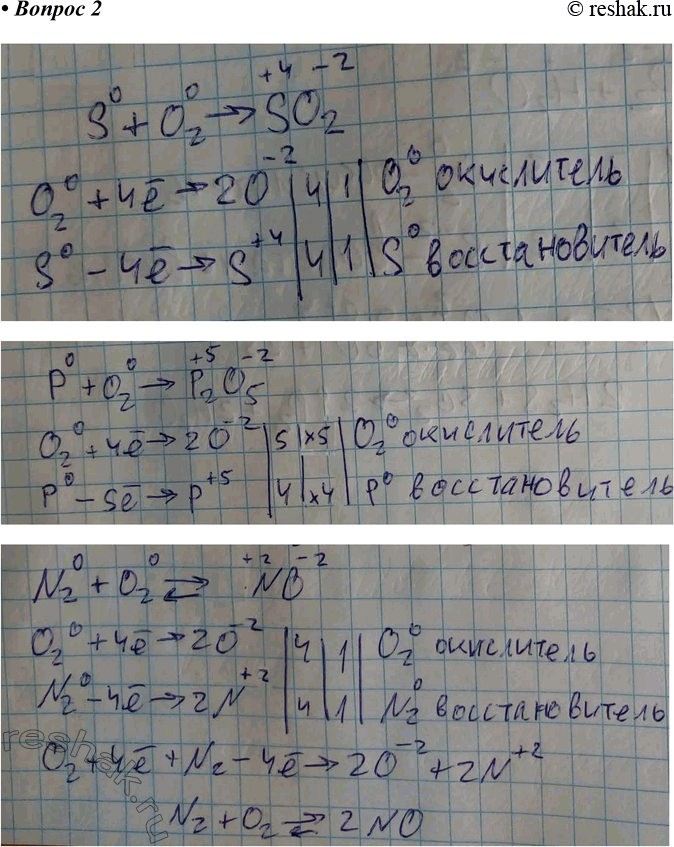 • Вопрос 2
© reshak.ru
+4 -2
S⁰ + O₂⁰ → SO₂
O₂⁰ + 4ē → 2O⁻² | 4 | 1 | O₂⁰ окислитель
S⁰ - 4ē → S⁺⁴ | 4 | 1 | S⁰ восстановитель
+5 -2
P⁰ + O₂⁰ → P₂O₅
O₂⁰ + 4ē → 2O⁻² | 5 | ×5 | O₂⁰ окислитель
P⁰ - 5ē → P⁺⁵ | 4 | ×4 | P⁰ восстановитель
+2 -2
N₂⁰ + O₂⁰ ⇄ NO
O₂⁰ + 4ē → 2O⁻² | 4 | 1 | O₂⁰ окислитель
N₂⁰ - 4ē → 2N⁺² | 4 | 1 | N₂⁰ восстановитель
O₂ + 4ē + N₂ - 4ē → 2O⁻² + 2N⁺²
N₂ + O₂ ⇄ 2NO
reshak.ru